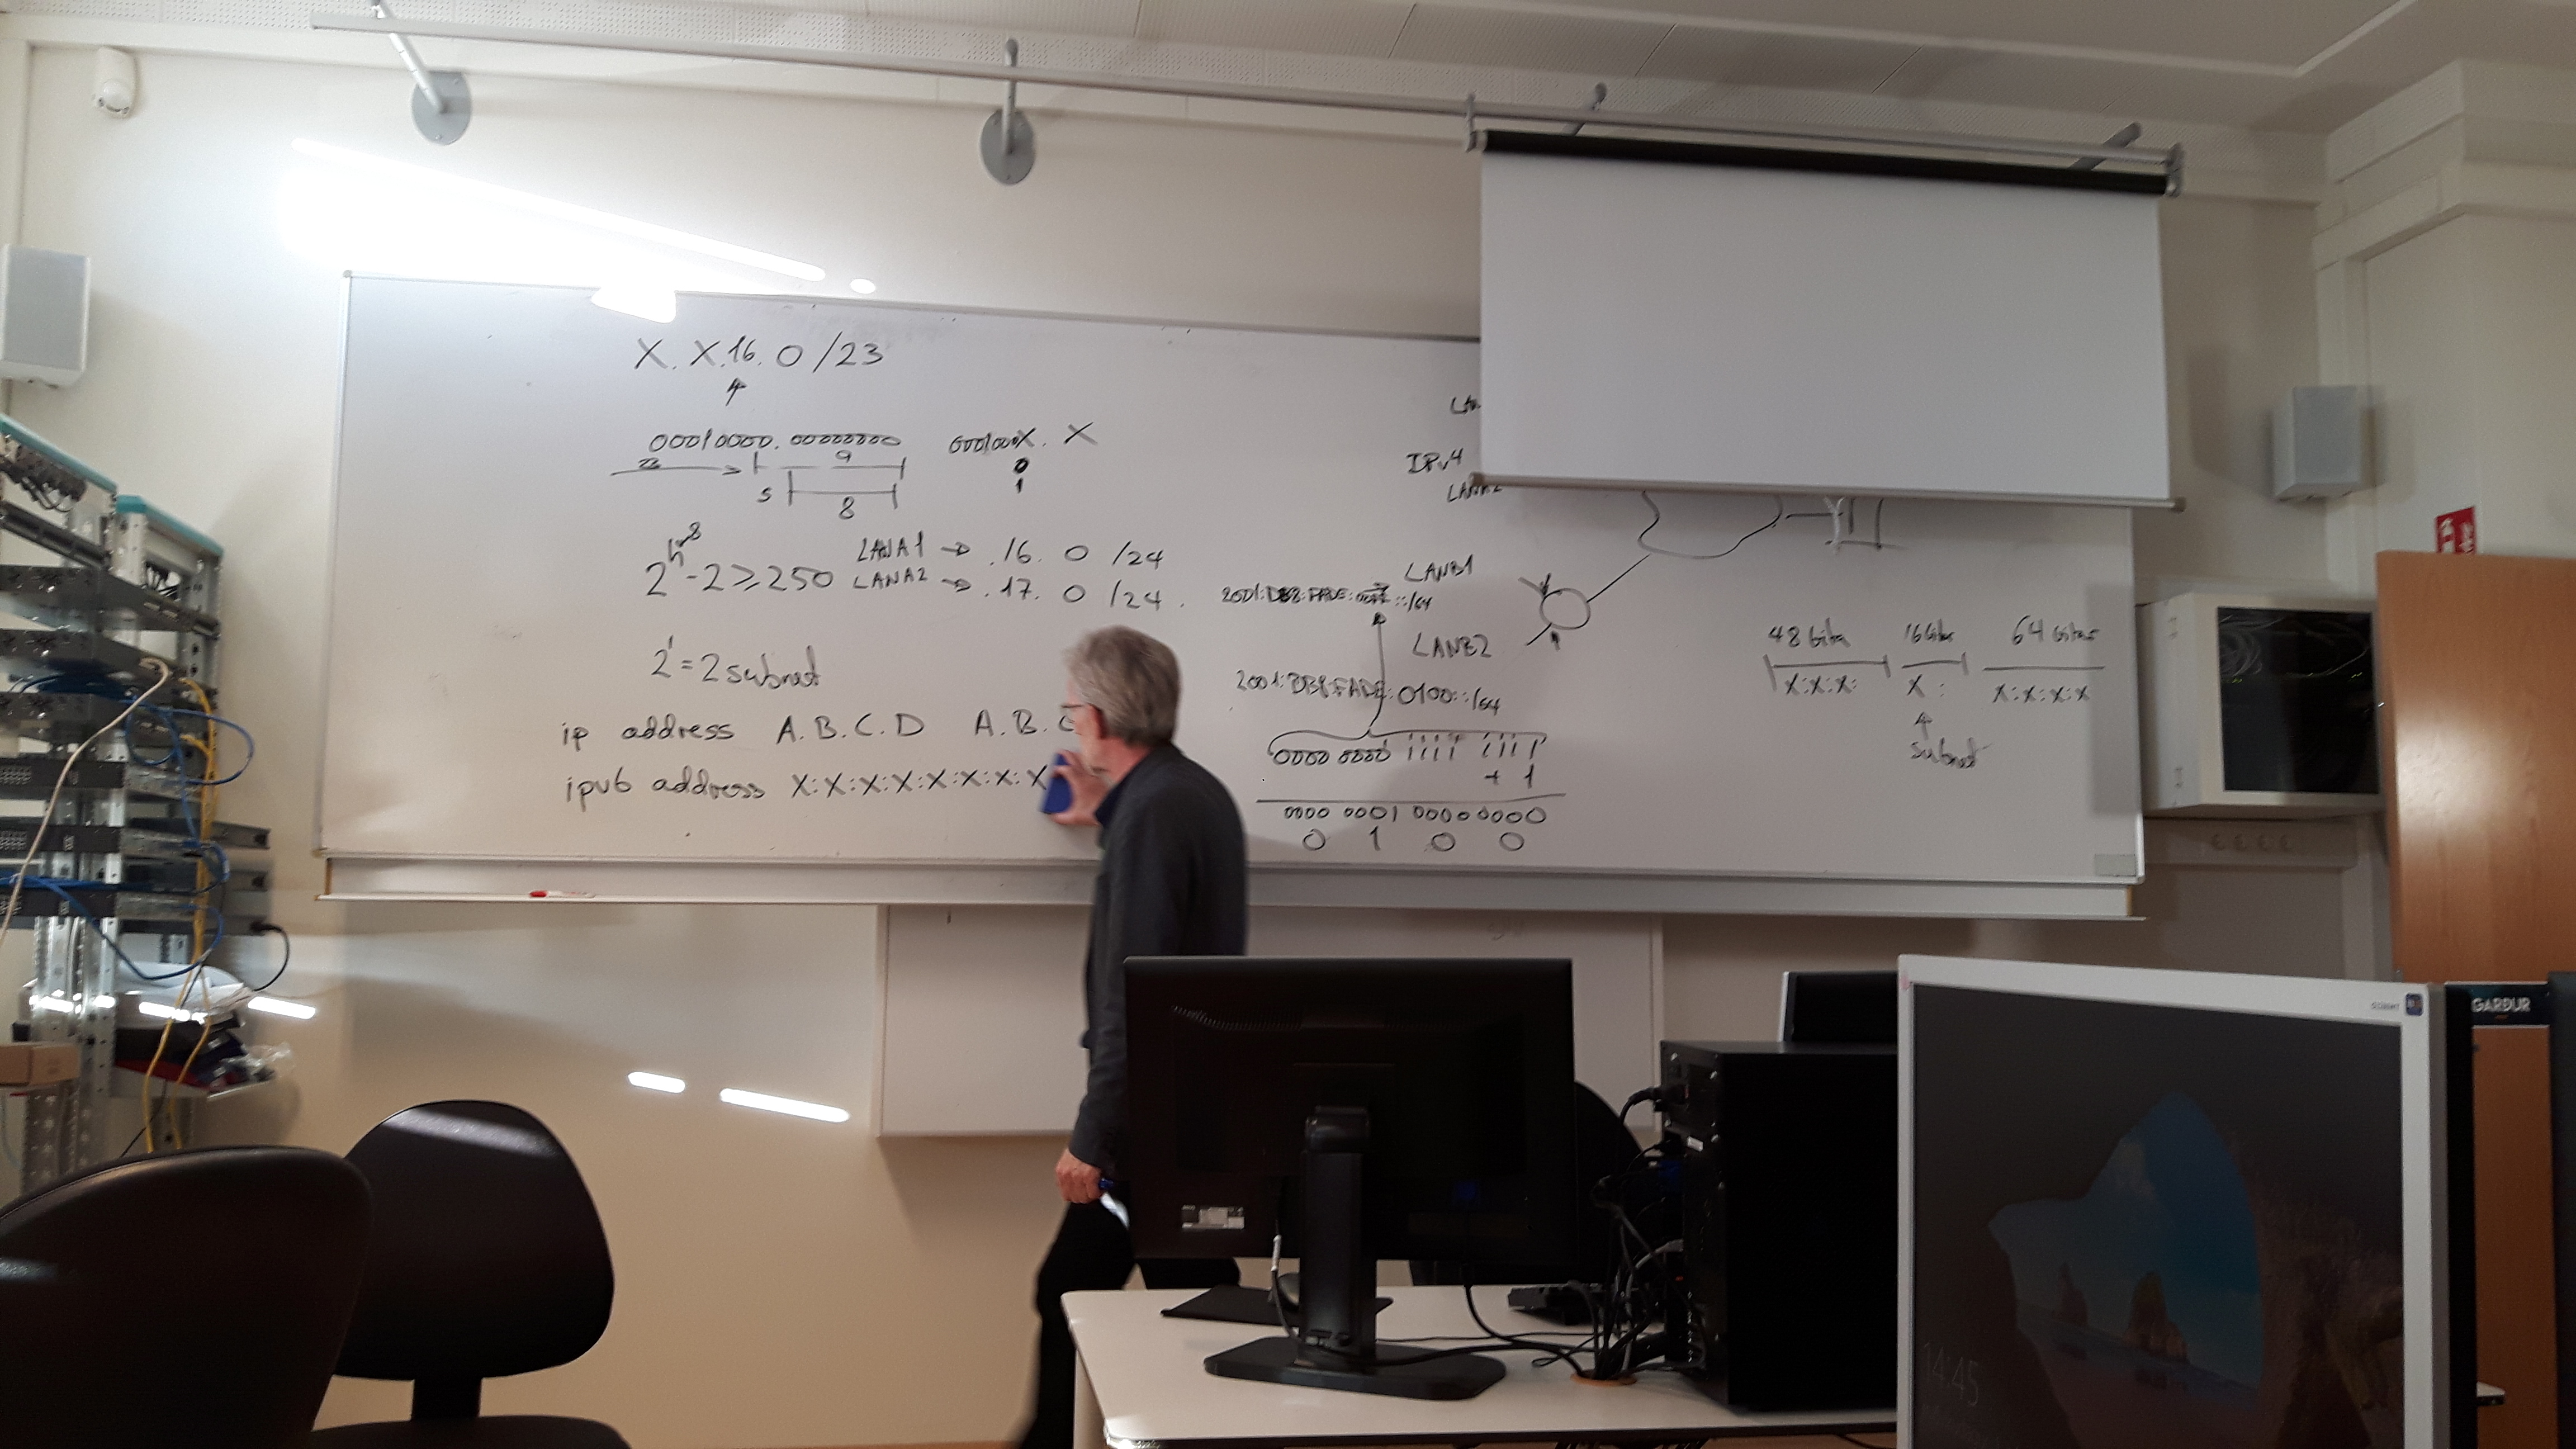 X. X.16. 0 /23
00010000. 00000000
0001000X. X
9
0
1
s
8
2^n - 2 ≥ 250
8
LANA1 → .16. 0 /24
LANA2 → .17. 0 /24.
2^1 = 2 subnet
ip address A.B.C.D A.B.C
ipv6 address X:X:X:X:X:X:X:X
IPv4
LANA2
LANB1
::/64
LANB2
2001:DB8:FADE:0100::/64
0000 0000 1111 1111
+ 1
0000 0001 0000 0000
0 1 0 0
48 bita 16 bita 64 bitar
X:X:X: X : X:X:X:X
subnet
GARÐUR
14:45